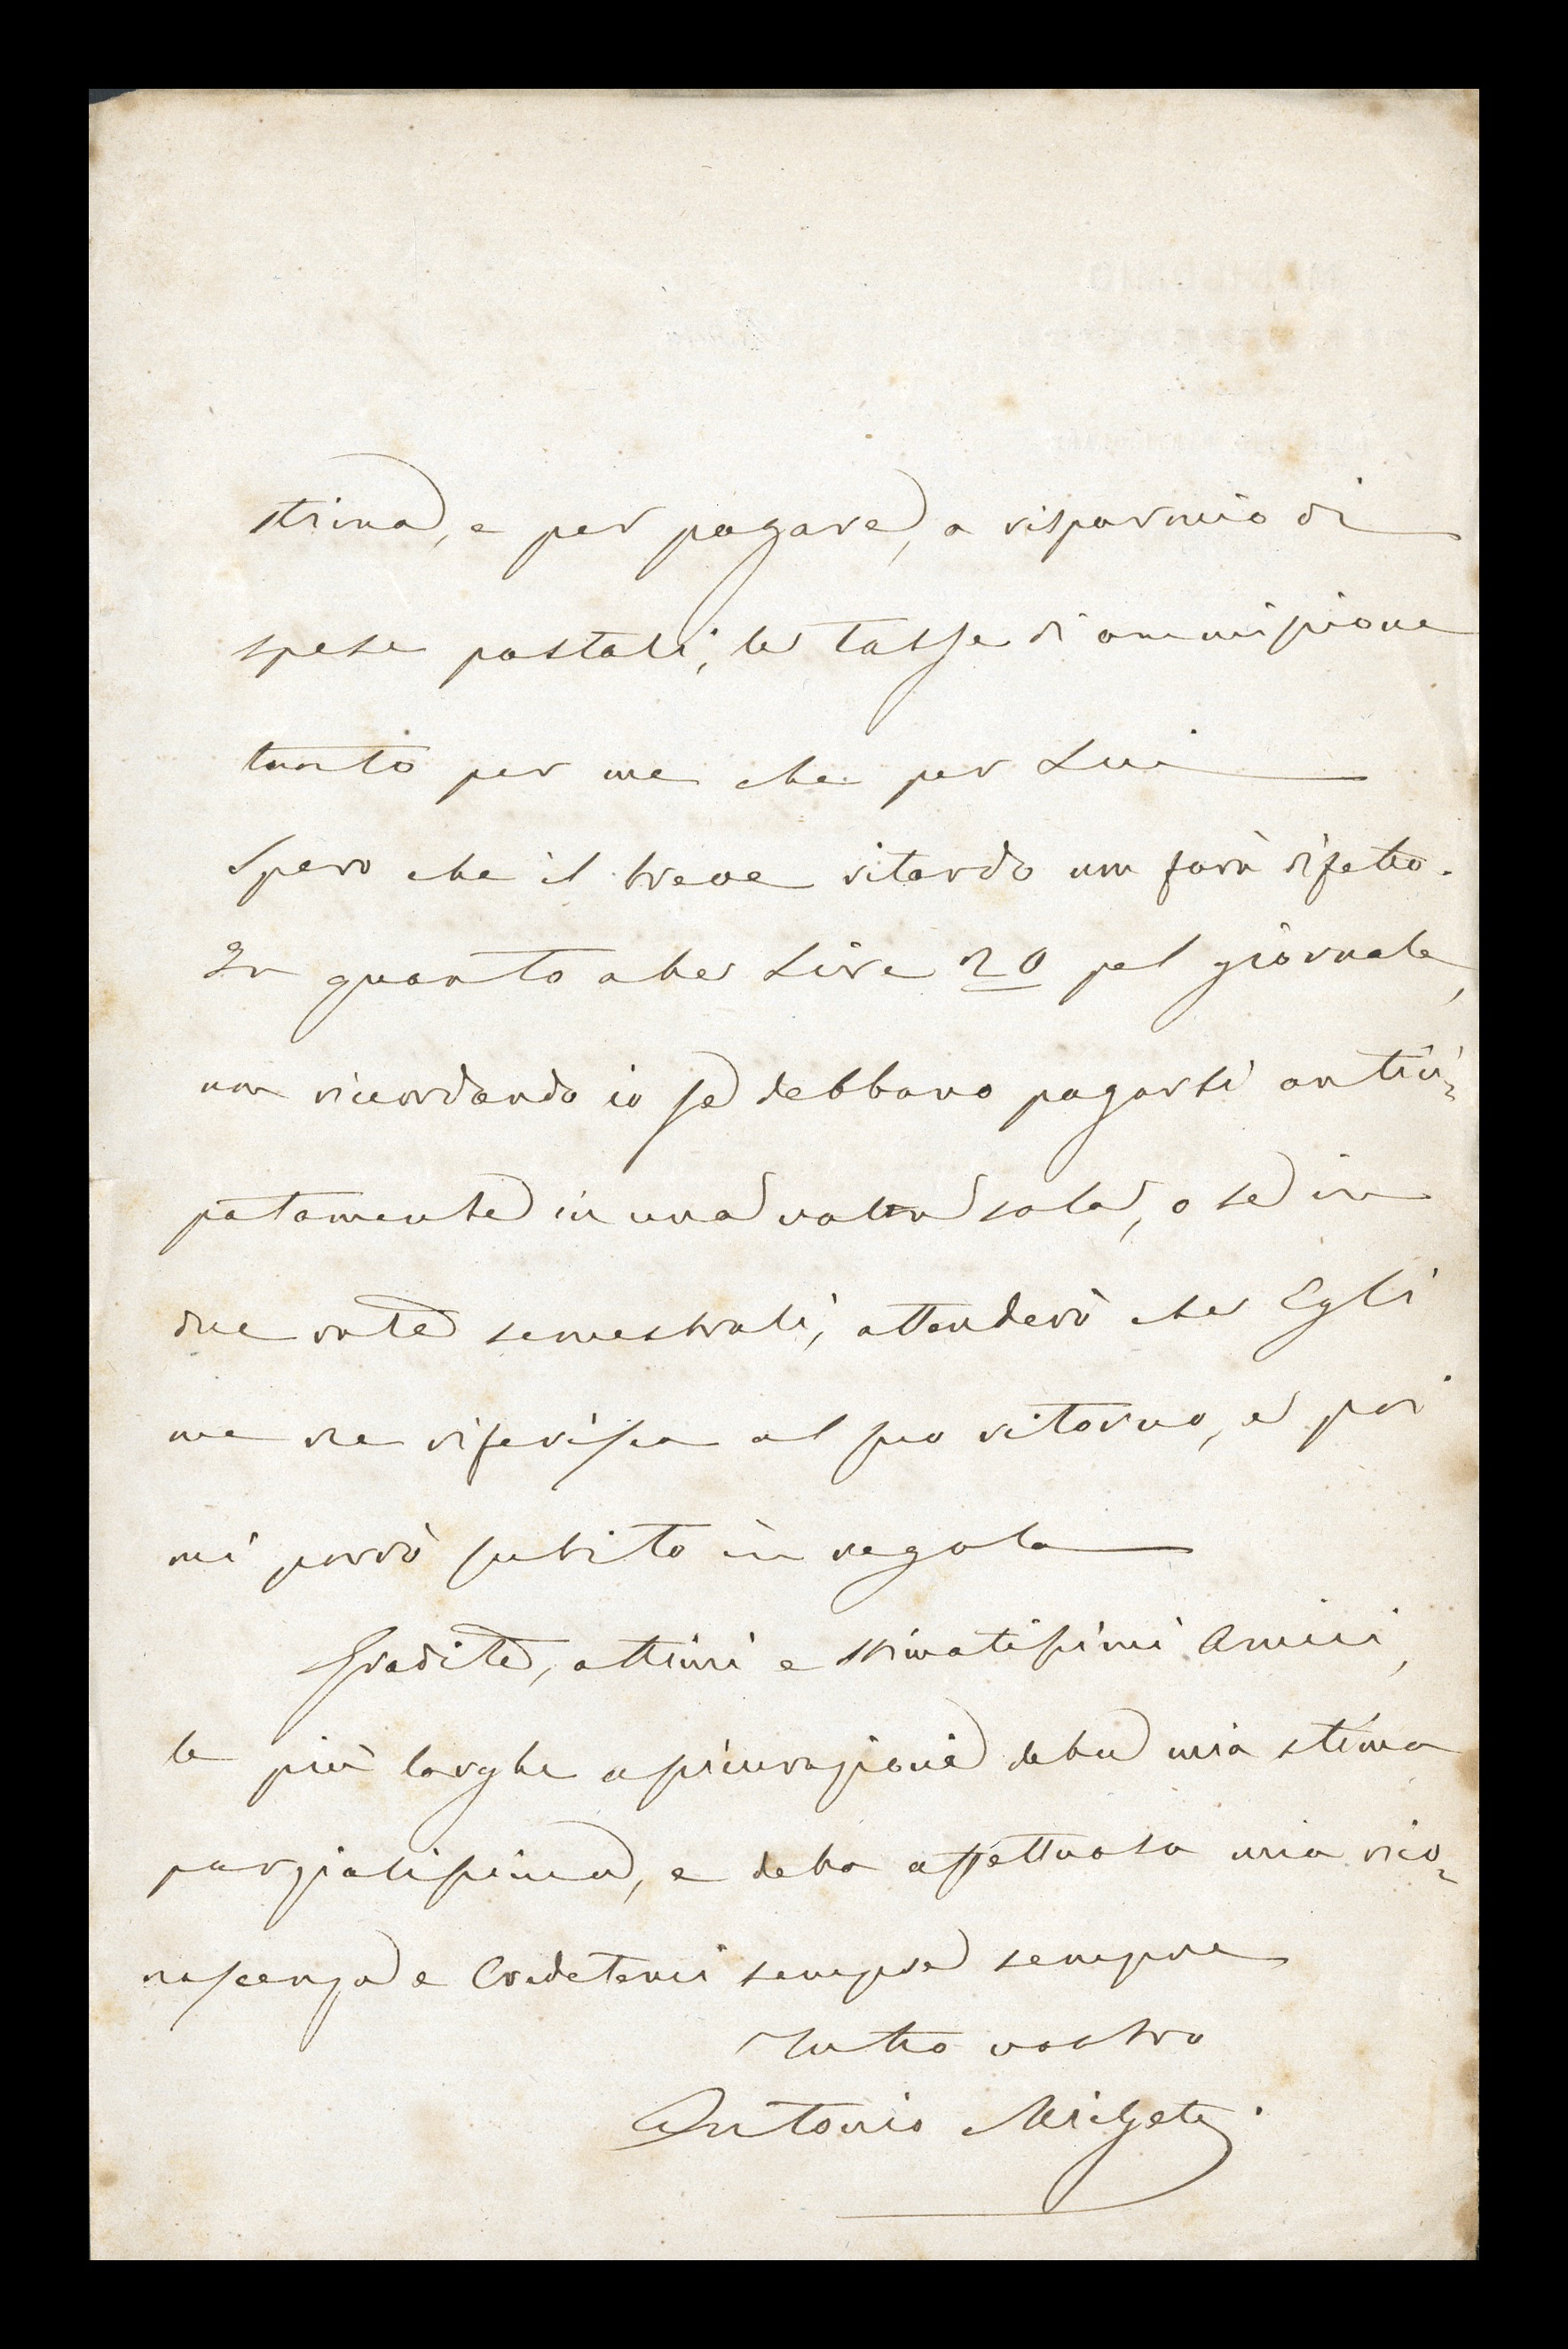 stima, e per pagare, a risparmio di
spese postali, le tasse di ammissione
tanto per me che per Lui
Spero che il breve ritardo non farà difetto.
In quanto alle Lire 20 pel giornale,
non ricordando io se debbano pagarsi antici-
patamente in una volta sola, o se in
due rate semestrali, attenderò che Egli
me ne riferisca al suo ritorno, e poi
mi porrò subito in regola
Gradite, ottimi e stimatissimi Amici,
le più larghe assicurazioni della mia stima
parzialissima, e della affettuosa mia rico-
noscenza e Credetemi sempre sempre
Tutto vostro
Antonio